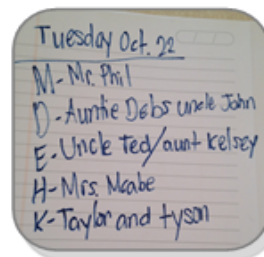 Tuesday Oct. 22
M-Mr. Phil
D-Auntie Debs uncle John
E-Uncle Ted/aunt Kelsey
H-Mrs. Mcabe
K-Taylor and tyson